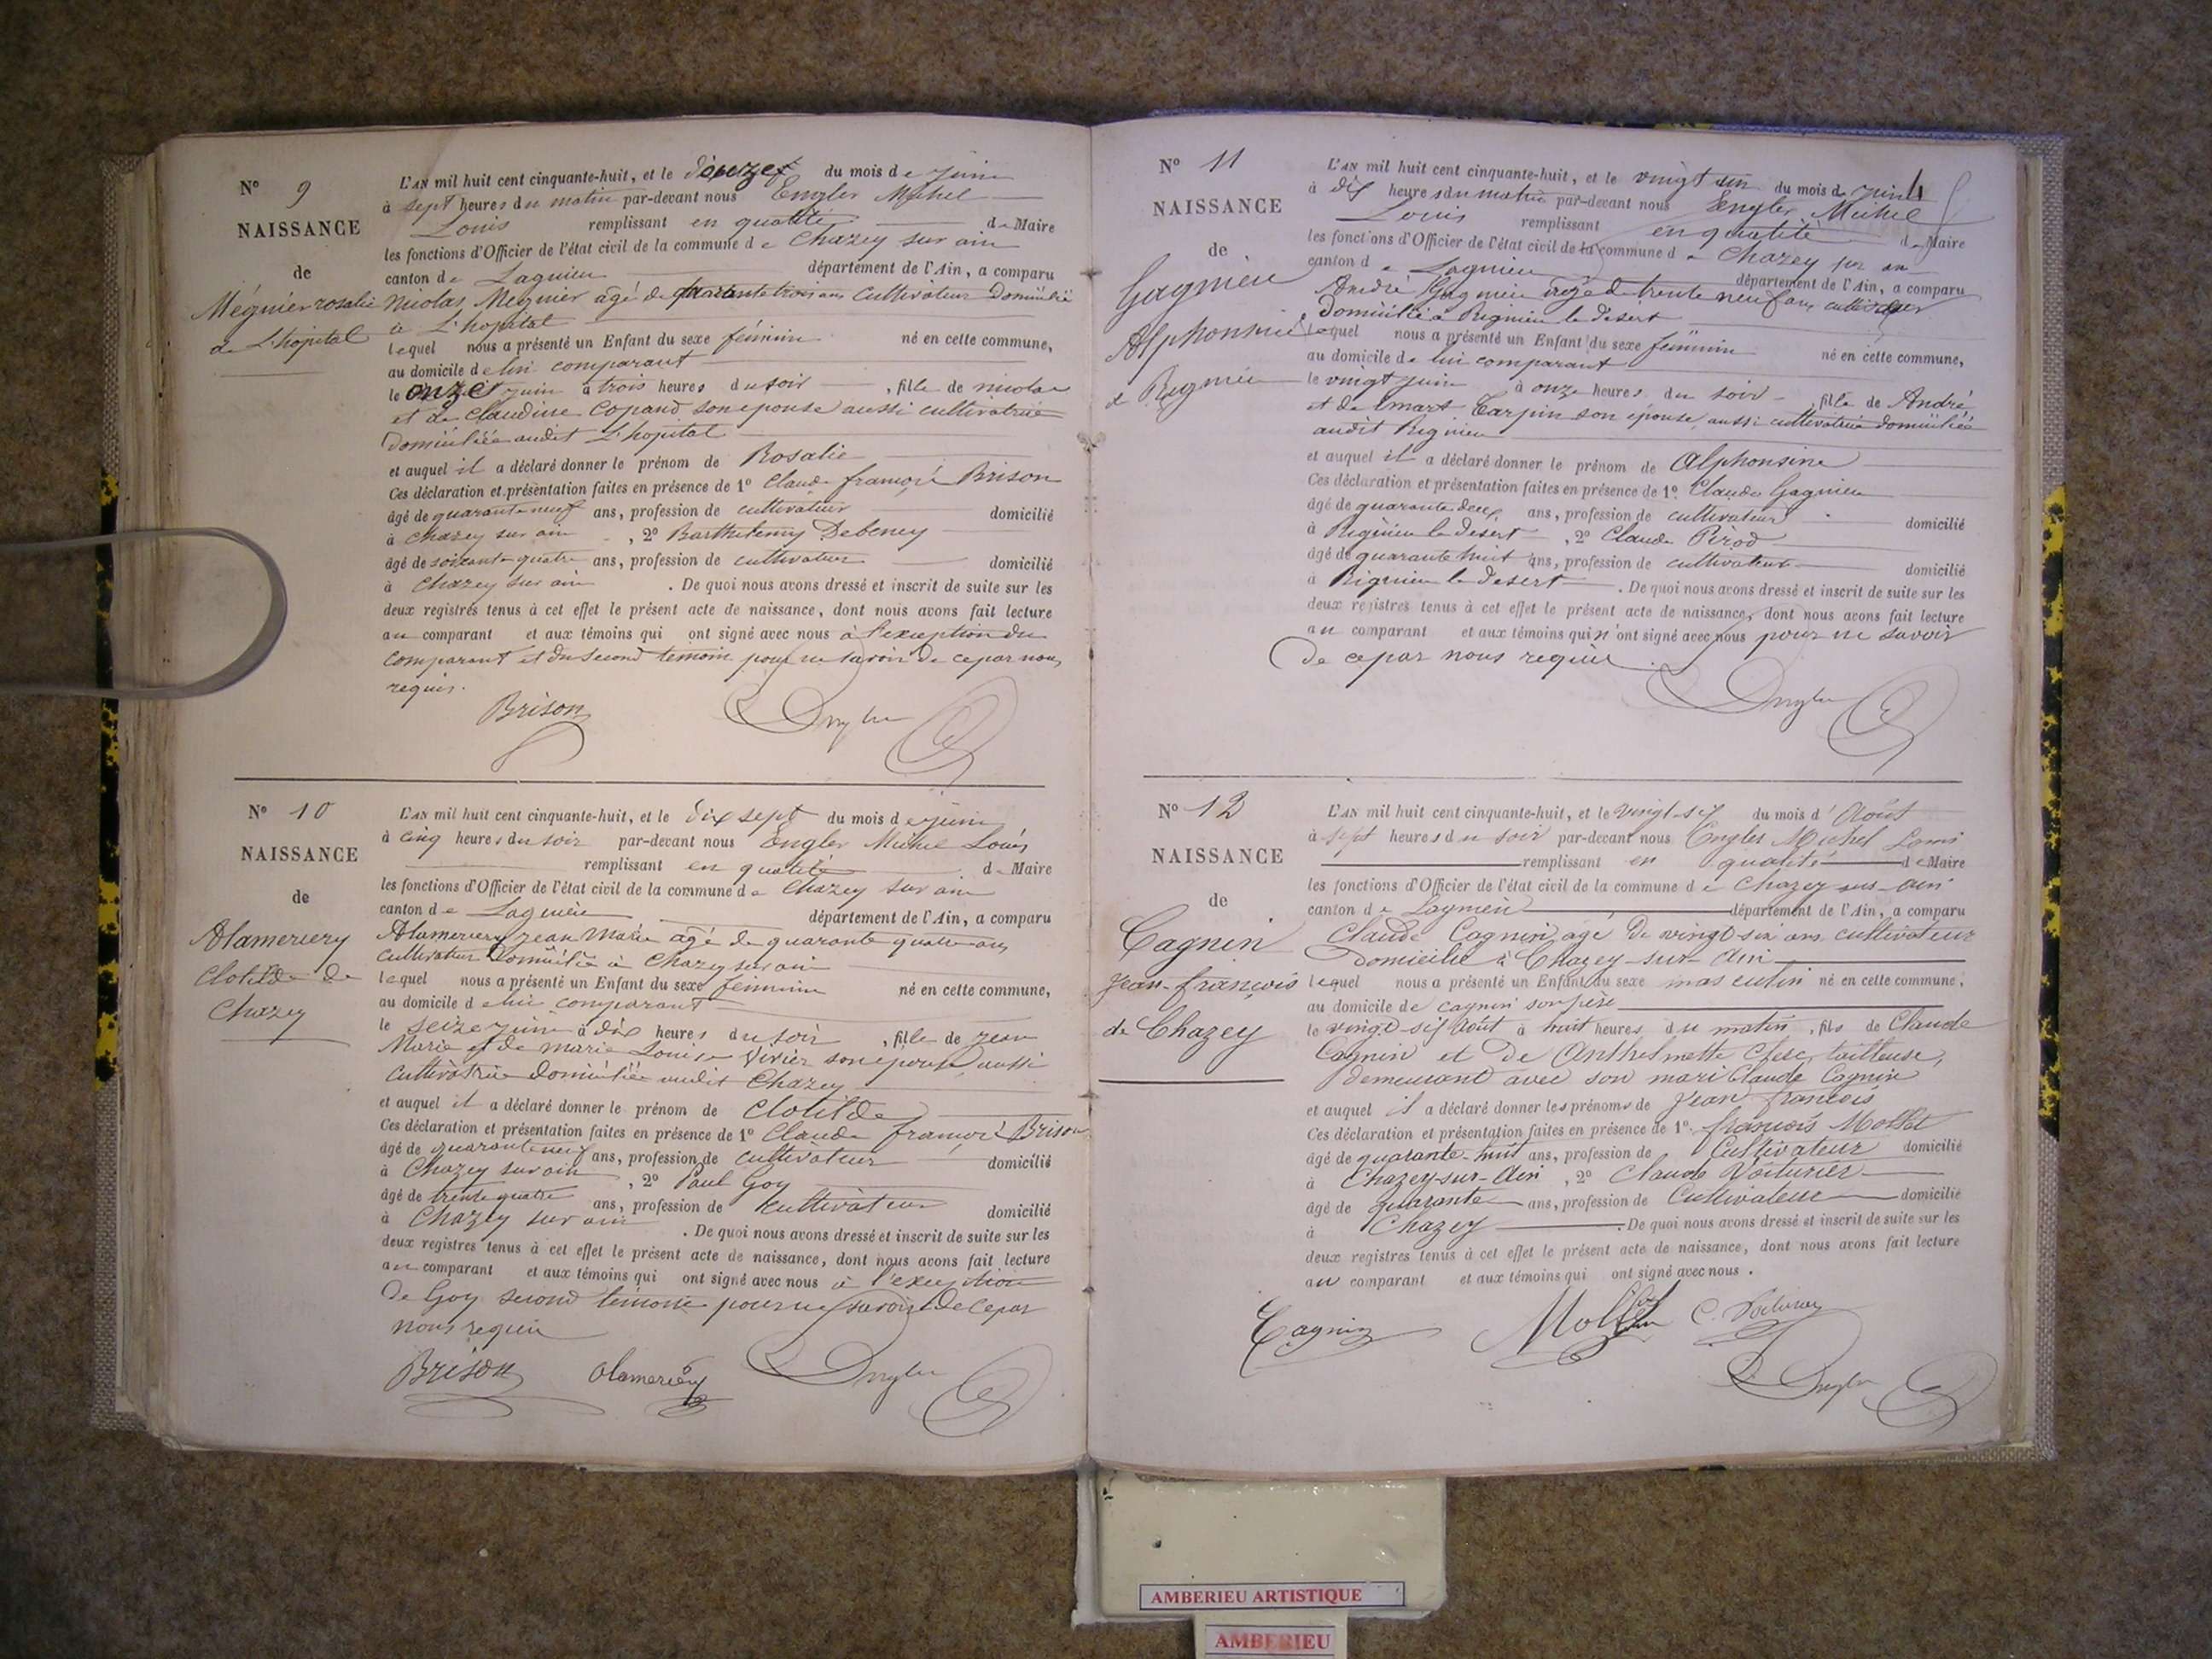 N° 9
NAISSANCE
de
Mégnier rosalie
de L'hopital
L'AN mil huit cent cinquante-huit, et le douze du mois de juin
à sept heures du matin par-devant nous Engler Michel
Louis remplissant en qualité de Maire
les fonctions d'Officier de l'état civil de la commune de Chazey sur ain
canton de Lagnieu département de l'Ain, a comparu
Nicolas Megnier agé de quarante trois ans Cultivateur Domicilié
à L'hopital
lequel nous a présenté un Enfant du sexe féminin né en cette commune,
au domicile de lui comparant
le onze juin à trois heures du soir, fille de nicolas
et de Claudine Copand son epouse aussi cultivatrice
Domiciliée audit L'hopital
et auquel il a déclaré donner le prénom de Rosalie
Ces déclaration et présentation faites en présence de 1° Claude françois Brison
âgé de quarante neuf ans, profession de cultivateur domicilié
à Chazey sur ain, 2° Barthelemy Debeney
âgé de soixante quatre ans, profession de cultivateur domicilié
à Chazey sur ain. De quoi nous avons dressé et inscrit de suite sur les
deux registres tenus à cet effet le présent acte de naissance, dont nous avons fait lecture
au comparant et aux témoins qui ont signé avec nous à l'exception du
comparant et du second temoin pour ne savoir de ce par nous
requis.
Brison Engler
N° 10
NAISSANCE
de
Alamerciery
Clotilde de
Chazey
L'AN mil huit cent cinquante-huit, et le dix sept du mois de juin
à cinq heures du soir par-devant nous Engler Michel Louis
remplissant en qualité de Maire
les fonctions d'Officier de l'état civil de la commune de Chazey sur ain
canton de Lagnieu département de l'Ain, a comparu
Alamerciery jean Marie agé de quarante quatre ans
cultivateur Domicilié à Chazey sur ain
lequel nous a présenté un Enfant du sexe feminin né en cette commune,
au domicile de lui comparant
le seize juin à dix heures du soir, fille de jean
Marie et de marie Louise Vivier son epouse aussi
Cultivatrice Domiciliée audit Chazey
et auquel il a déclaré donner le prénom de Clotilde
Ces déclaration et présentation faites en présence de 1° Claude françois Brison
âgé de quarante neuf ans, profession de cultivateur domicilié
à Chazey sur ain, 2° Paul Goy
âgé de trente quatre ans, profession de cultivateur domicilié
à Chazey sur ain. De quoi nous avons dressé et inscrit de suite sur les
deux registres tenus à cet effet le présent acte de naissance, dont nous avons fait lecture
au comparant et aux témoins qui ont signé avec nous à l'exception
de Goy second témoin pour ne savoir de ce par
nous requis
Brison Alamerciery Engler
N° 11
NAISSANCE
de
Gagnieu
Alphonsine
de Rignieu
L'AN mil huit cent cinquante-huit, et le vingt un du mois de juin
à dix heures du matin par-devant nous Engler Michel
Louis remplissant en qualité de Maire
les fonctions d'Officier de l'état civil de la commune de Chazey sur ain
canton de Lagnieu département de l'Ain, a comparu
André Gagnieu agé de trente neuf ans cultivateur
Domicilié à Rignieu le desert
lequel nous a présenté un Enfant du sexe féminin né en cette commune,
au domicile de lui comparant
le vingt juin à onze heures du soir, fille de André
et de Carpin son epouse aussi cultivatrice domiciliée
audit Rignieu
et auquel il a déclaré donner le prénom de Alphonsine
Ces déclaration et présentation faites en présence de 1° Claude Gagnieu
âgé de quarante deux ans, profession de cultivateur domicilié
à Rignieu le desert, 2° Claude Pérod
âgé de quarante huit ans, profession de cultivateur domicilié
à Rignieu le desert. De quoi nous avons dressé et inscrit de suite sur les
deux registres tenus à cet effet le présent acte de naissance, dont nous avons fait lecture
au comparant et aux témoins qui n'ont signé avec nous pour ne savoir
de ce par nous requis.
Engler
N° 12
NAISSANCE
de
Cagnin
Jean-françois
de Chazey
L'AN mil huit cent cinquante-huit, et le vingt-six du mois d'Août
à sept heures du soir par-devant nous Engler Michel Louis
remplissant en qualité de Maire
les fonctions d'Officier de l'état civil de la commune de Chazey-sur-Ain
canton de Lagnieu département de l'Ain, a comparu
Claude Cagnin agé de vingt-six ans cultivateur
Domicilié à Chazey-sur-Ain
lequel nous a présenté un Enfant du sexe masculin né en cette commune,
au domicile de cagnin son père
le vingt-six Août à huit heures du matin, fils de Claude
Cagnin et de Anthelmette Clerc, tailleuse,
demeurant avec son mari Claude Cagnin
et auquel il a déclaré donner les prénoms de Jean françois
Ces déclaration et présentation faites en présence de 1° françois Mollet
âgé de quarante-huit ans, profession de Cultivateur domicilié
à Chazey-sur-Ain, 2° Claude Voiturier
âgé de quarante ans, profession de Cultivateur domicilié
à Chazey. De quoi nous avons dressé et inscrit de suite sur les
deux registres tenus à cet effet le présent acte de naissance, dont nous avons fait lecture
au comparant et aux témoins qui ont signé avec nous.
Cagnin Mollet C. Voiturier
Engler
AMBERIEU ARTISTIQUE
AMBERIEU